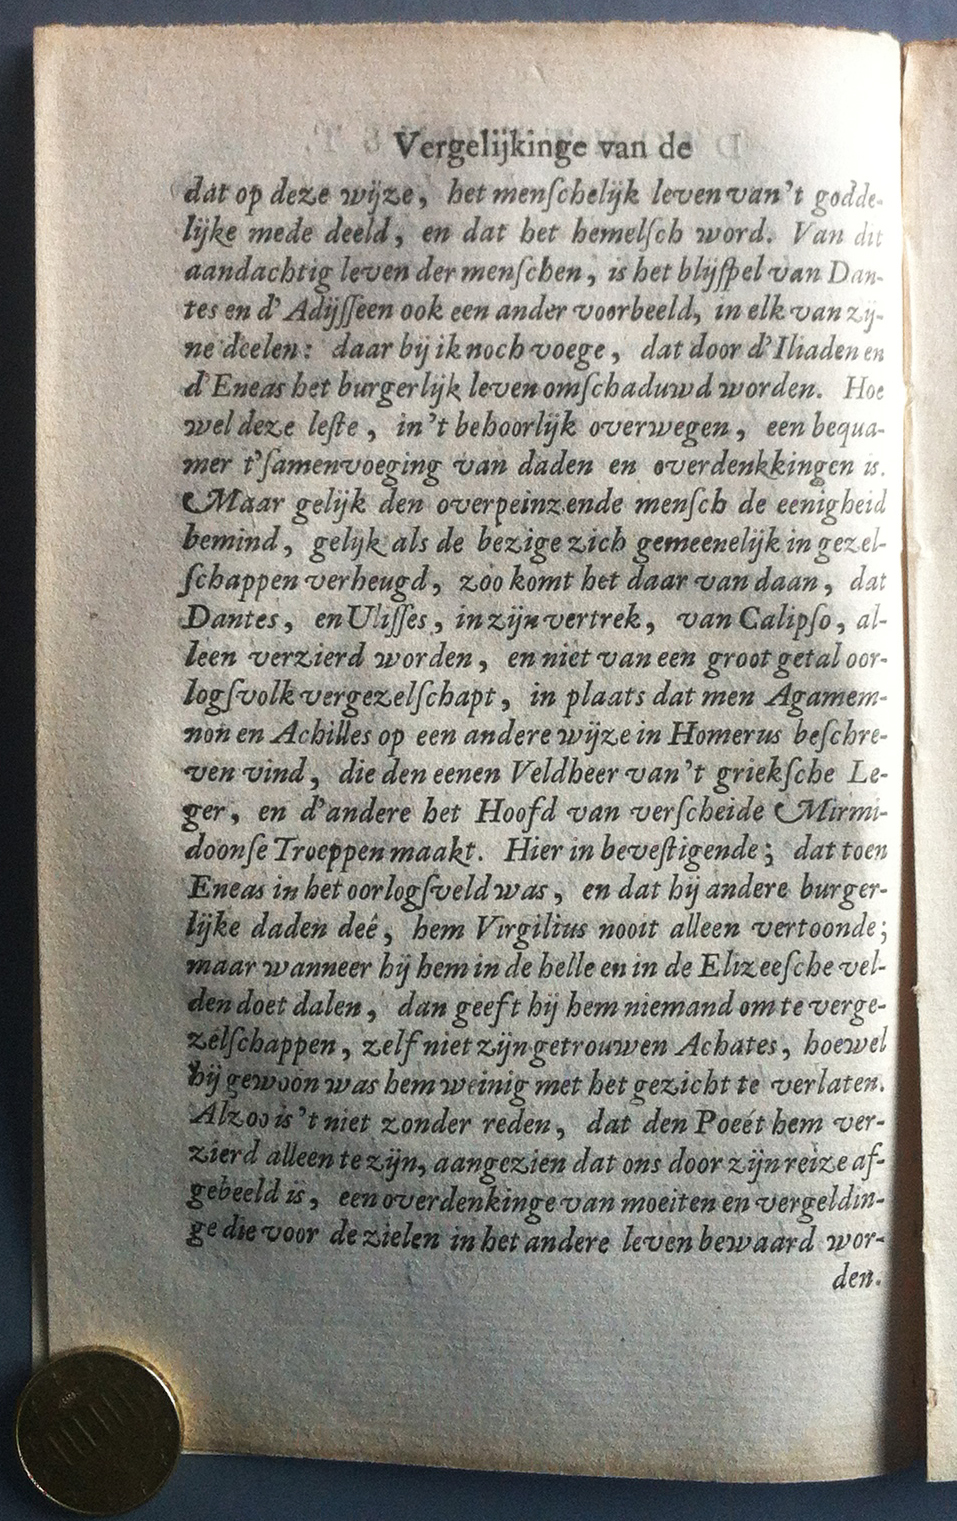 Vergelijkinge van de
dat op deze wijze, het menſchelijk leven van't godde-
lijke mede deeld, en dat het hemelſch word. Van dit
aandachtig leven der menſchen, is het blijſpel van Dan-
tes en d'Adijſſeen ook een ander voorbeeld, in elk van zij-
ne deelen: daar bij ik noch voege, dat door d'Iliaden en
d'Eneas het burgerlijk leven omſchaduwd worden. Hoe
wel deze leſte, in't behoorlijk overwegen, een bequa-
mer t'ſamenvoeging van daden en overdenkkingen is.
Maar gelijk den overpeinzende menſch de eenigheid
bemind, gelijk als de bezige zich gemeenelijk in gezel-
ſchappen verheugd, zoo komt het daar van daan, dat
Dantes, en Uliſſes, in zijn vertrek, van Calipſo, al-
leen verzierd worden, en niet van een groot getal oor-
logſvolk vergezelſchapt, in plaats dat men Agamem-
non en Achilles op een andere wijze in Homerus beſchre-
ven vind, die den eenen Veldheer van't griekſche Le-
ger, en d'andere het Hoofd van verſcheide Mirmi-
doonſe Troeppen maakt. Hier in beveſtigende; dat toen
Eneas in het oorlogſveld was, en dat hij andere burger-
lijke daden deê, hem Virgilius nooit alleen vertoonde;
maar wanneer hij hem in de helle en in de Elizeeſche vel-
den doet dalen, dan geeft hij hem niemand om te verge-
zelſchappen, zelf niet zijn getrouwen Achates, hoewel
hij gewoon was hem weinig met het gezicht te verlaten.
Alzoo is 't niet zonder reden, dat den Poeét hem ver-
zierd alleen te zijn, aangezien dat ons door zijn reize af-
gebeeld is, een overdenkinge van moeiten en vergeldin-
ge die voor de zielen in het andere leven bewaard wor-
den.